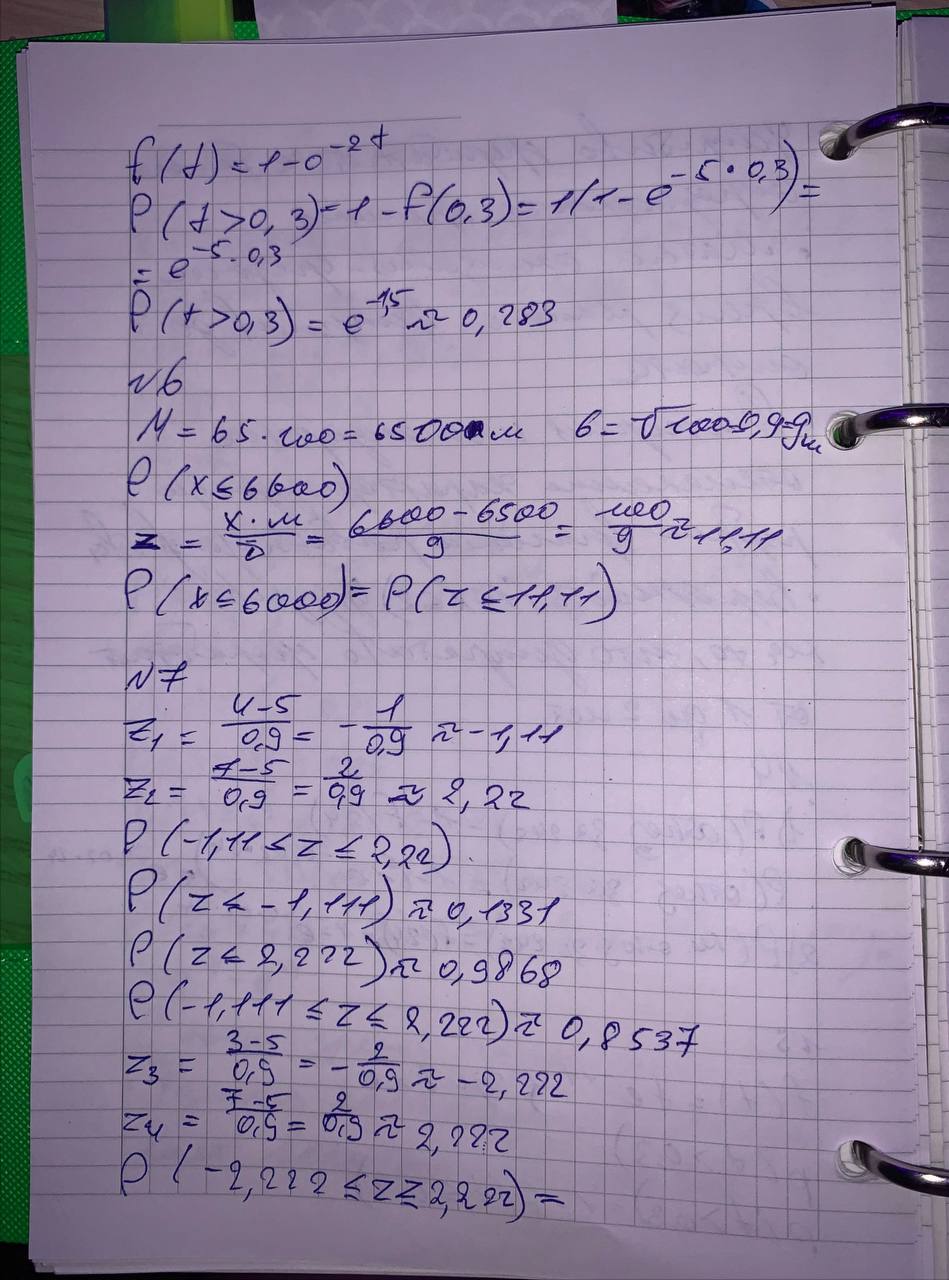 f(t) = 1 - e^{-2t}
P(t > 0,3) = 1 - f(0,3) = 1(1 - e^{-5 · 0,3}) =
= e^{-5 · 0,3}
P(t > 0,3) = e^{-1,5} ≈ 0,283
№6
M = 65 · 100 = 6500 м σ = √100 · 0,9 = 9 м
P(x ≤ 6600)
z = \frac{x · м}{σ} = \frac{6600 - 6500}{9} = \frac{100}{9} ≈ 11,11
P(x ≤ 6000) = P(z ≤ 11,11)
№7
z₁ = \frac{4-5}{0,9} = -\frac{1}{0,9} ≈ -1,11
z₂ = \frac{7-5}{0,9} = \frac{2}{0,9} ≈ 2,22
P(-1,11 ≤ z ≤ 2,22)
P(z ≤ -1,111) ≈ 0,1331
P(z ≤ 2,222) ≈ 0,9868
P(-1,111 ≤ z ≤ 2,222) ≈ 0,8537
z₃ = \frac{3-5}{0,9} = -\frac{2}{0,9} ≈ -2,222
z₄ = \frac{7-5}{0,9} = \frac{2}{0,9} ≈ 2,222
P(-2,222 ≤ z ≤ 2,222) =